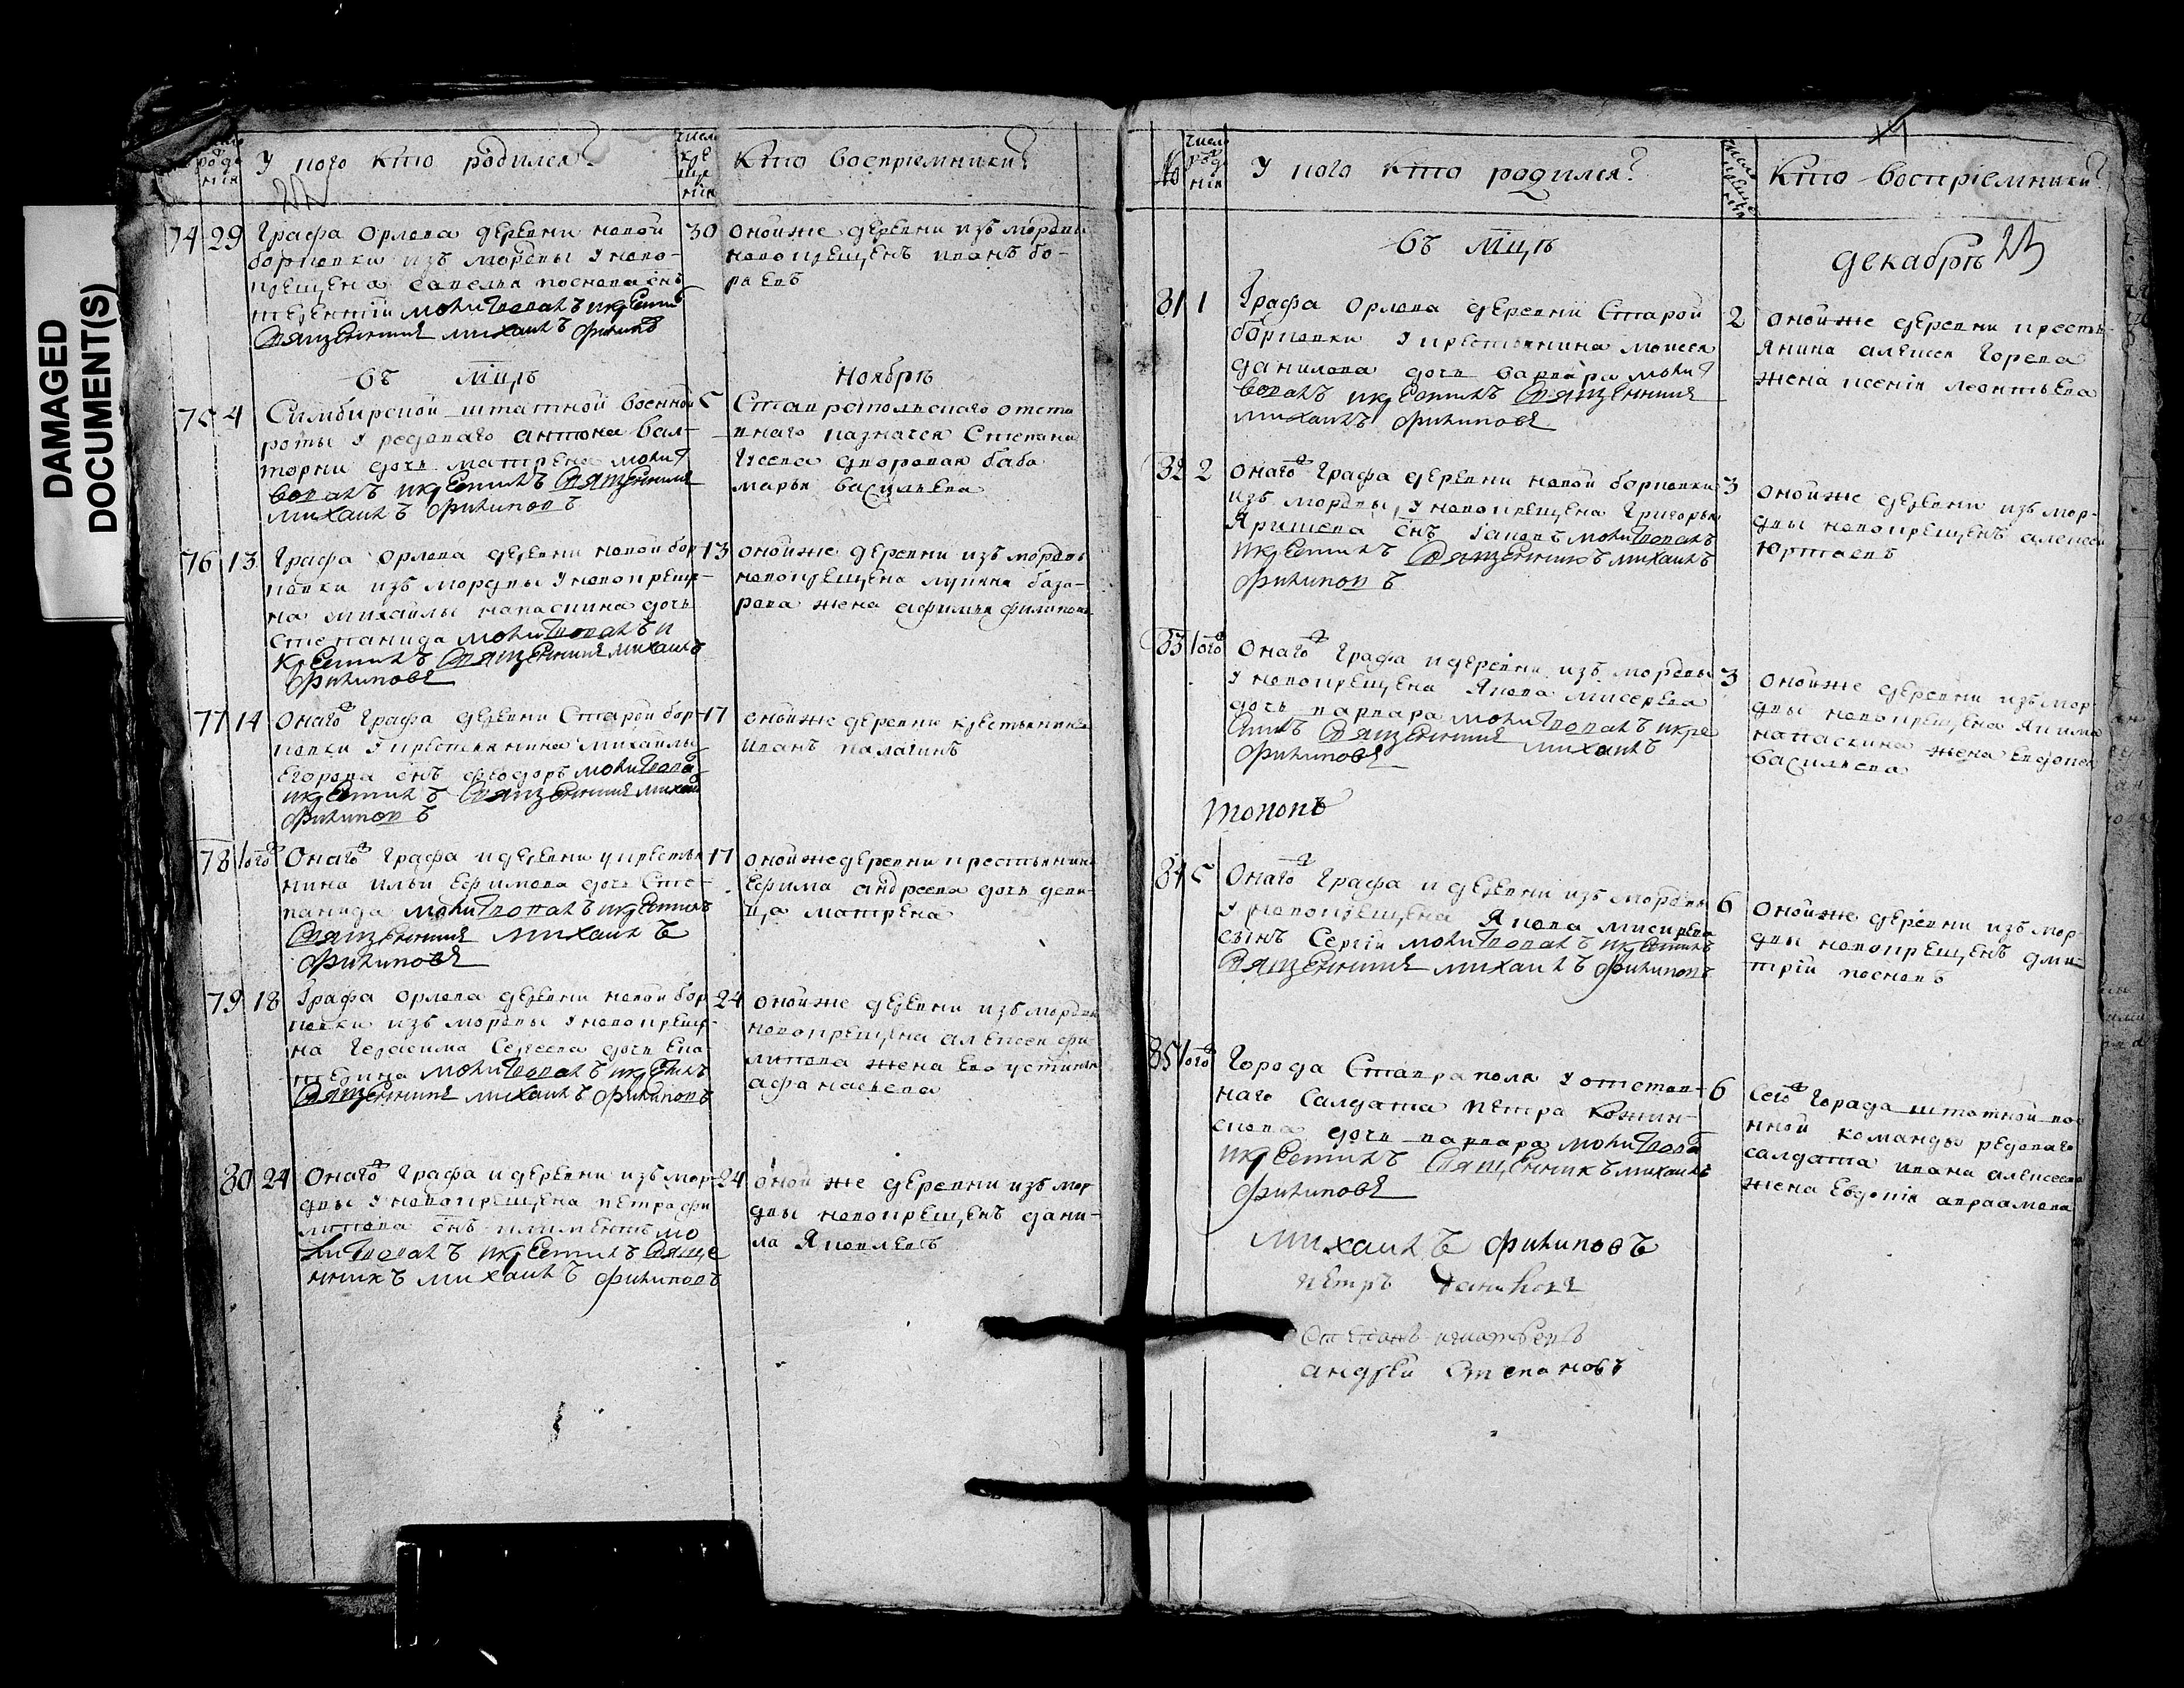 DAMAGED
DOCUMENT(S)
число рожденія
У кого кто родился?
число крещенія
Кто восприемники?
74 29 Графа Орлова деревни новой
борковки изъ мордвы у ново-
крещена Савелья поснова снъ
терентій молитвовалъ икрестилъ
Священникъ михаилъ филиповъ
30 оной же деревни изъ мордвы
новокрещенъ иванъ бо-
риевъ
въ мцѣ ноябрѣ
75 4 Симбирской штатной военной
роты у редоваго антона вал-
торни дочь матрена молит
вовалъ икрестилъ Священникъ
михаилъ филиповъ
5 Ставропольскаго отста
внаго казначея Степана
Гусева дворовая баба
марья васильева
76 13 Графа Орлова деревни новой бор
ковки изъ мордвы у новокреще-
на михайлы напаскина дочь
степанида молитвовалъ и
крестилъ Священникъ михаилъ
филиповъ
13 оной же деревни изъ мордвы
новокрещена лукина база-
рова жена афимья филипова
77 14 Онаго Графа деревни Старой бор-
ковки у крестьянина михайлы
Егорова снъ феодоръ молитвова
икрестилъ Священникъ михаил
филиповъ
17 оной же деревни крестьянинъ
иванъ палагинъ
78 того Онаго Графа идеревни укрестья
нина ильи Ефимова дочь Сте-
панида молитвовалъ икрестилъ
Священникъ михаилъ
филиповъ
17 оной же деревни крестьянина
Ефима андреева дочь деви-
ца матрена
79 18 Графа Орлова деревни новой бор
ковки изъ мордвы у новокреще-
на Герасима Сергеева дочь Ека-
терина молитвовалъ икрстилъ
Священникъ михаилъ филиповъ
24 оной же деревни изъ мордвы
новокрещена алексея фи-
липова жена Ево устинья
афанасьева
80 24 Онаго Графа идеревни изъ мор-
двы у новокрещена петра фи
липова снъ климентъ мо
литвовалъ икрестилъ Свяще
нникъ михаилъ филиповъ
24 оной же деревни изъ мор
двы новокрещенъ дани-
ла Яковлевъ
число рожденія
У кого кто родился?
Кто восприемники?
25
въ мцѣ декабрѣ
81 1 Графа Орлова деревни Старой
борковки у крестьянина моисея
данилова дочь варвара молит
вовалъ икрестилъ Священникъ
михаилъ филиповъ
2 оной же деревни кресть-
янина алексея Горева
жена ксенія леонтьева
82 2 Онаго Графа деревни новой борковки
изъ мордвы у новокрещена Григорья
Яришева снъ Iаковъ молитвовалъ
икрестилъ Священникъ михаилъ
филиповъ
3 оной же деревни изъ мор-
двы новокрещенъ алексей
Юртаевъ
83 того Онаго Графа идеревни изъ мордвы
у новокрещена Якова мисерева
дочь варвара молитвовалъ икре
стилъ Священникъ михаилъ
филиповъ
3 оной же деревни изъ мор
двы новокрещена Якима
напаскина жена Евдокея
васильева
84 5 Онаго Графа идеревни изъ мордвы
у новокрещена Якова мисирева
сынъ Сергій молитвовалъ икрестилъ
Священникъ михаилъ филиповъ
6 оной же деревни изъ мор
двы новокрещенъ дми-
трій посновъ
85 того Города Ставраполя у отстав-
наго Салдата петра кожин-
скова дочь варвара молитвова
икрестилъ Священникъ михаилъ
филиповъ
6 Сего Города штатной вое
нной команды редоваго
салдата ивана алексеева
жена Евдокія авраамова
михаилъ филиповъ
петръ даниловъ
Степанъ игнатьевъ
андрей Степановъ